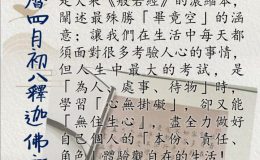 曆四月初八釋迦佛
是大乘《般若經》的濃縮本,
闡述最殊勝「畢竟空」的涵
意;讓我們在生活中每天都
須面對很多考驗人心的事情,
但人生中最大的考試,是
「為人、處事、待物」時,
學習「心無掛礙」,卻又能
「無住生心」,盡全力做好
自己個人的「本份、責任、
角色」體驗觀自在的生活!